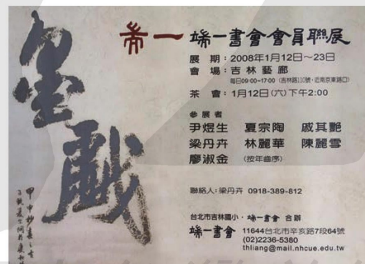 墨戲
希一 端一書會會員聯展
展　期：2008年1月12日～23日
會　場：吉林藝廊
茶　會：1月12日(六)下午2:00
參展者
尹煜生　夏宗陶　戚其艷
梁丹卉　林麗華　陳麗雪
廖淑金　(按年齡序)
聯絡人：梁丹卉 0918-389-812
台北市吉林國小．端一書會 合辦
端一書會 11644台北市辛亥路7段64號
(02)2236-5380
thliang@mail.nhcue.edu.tw